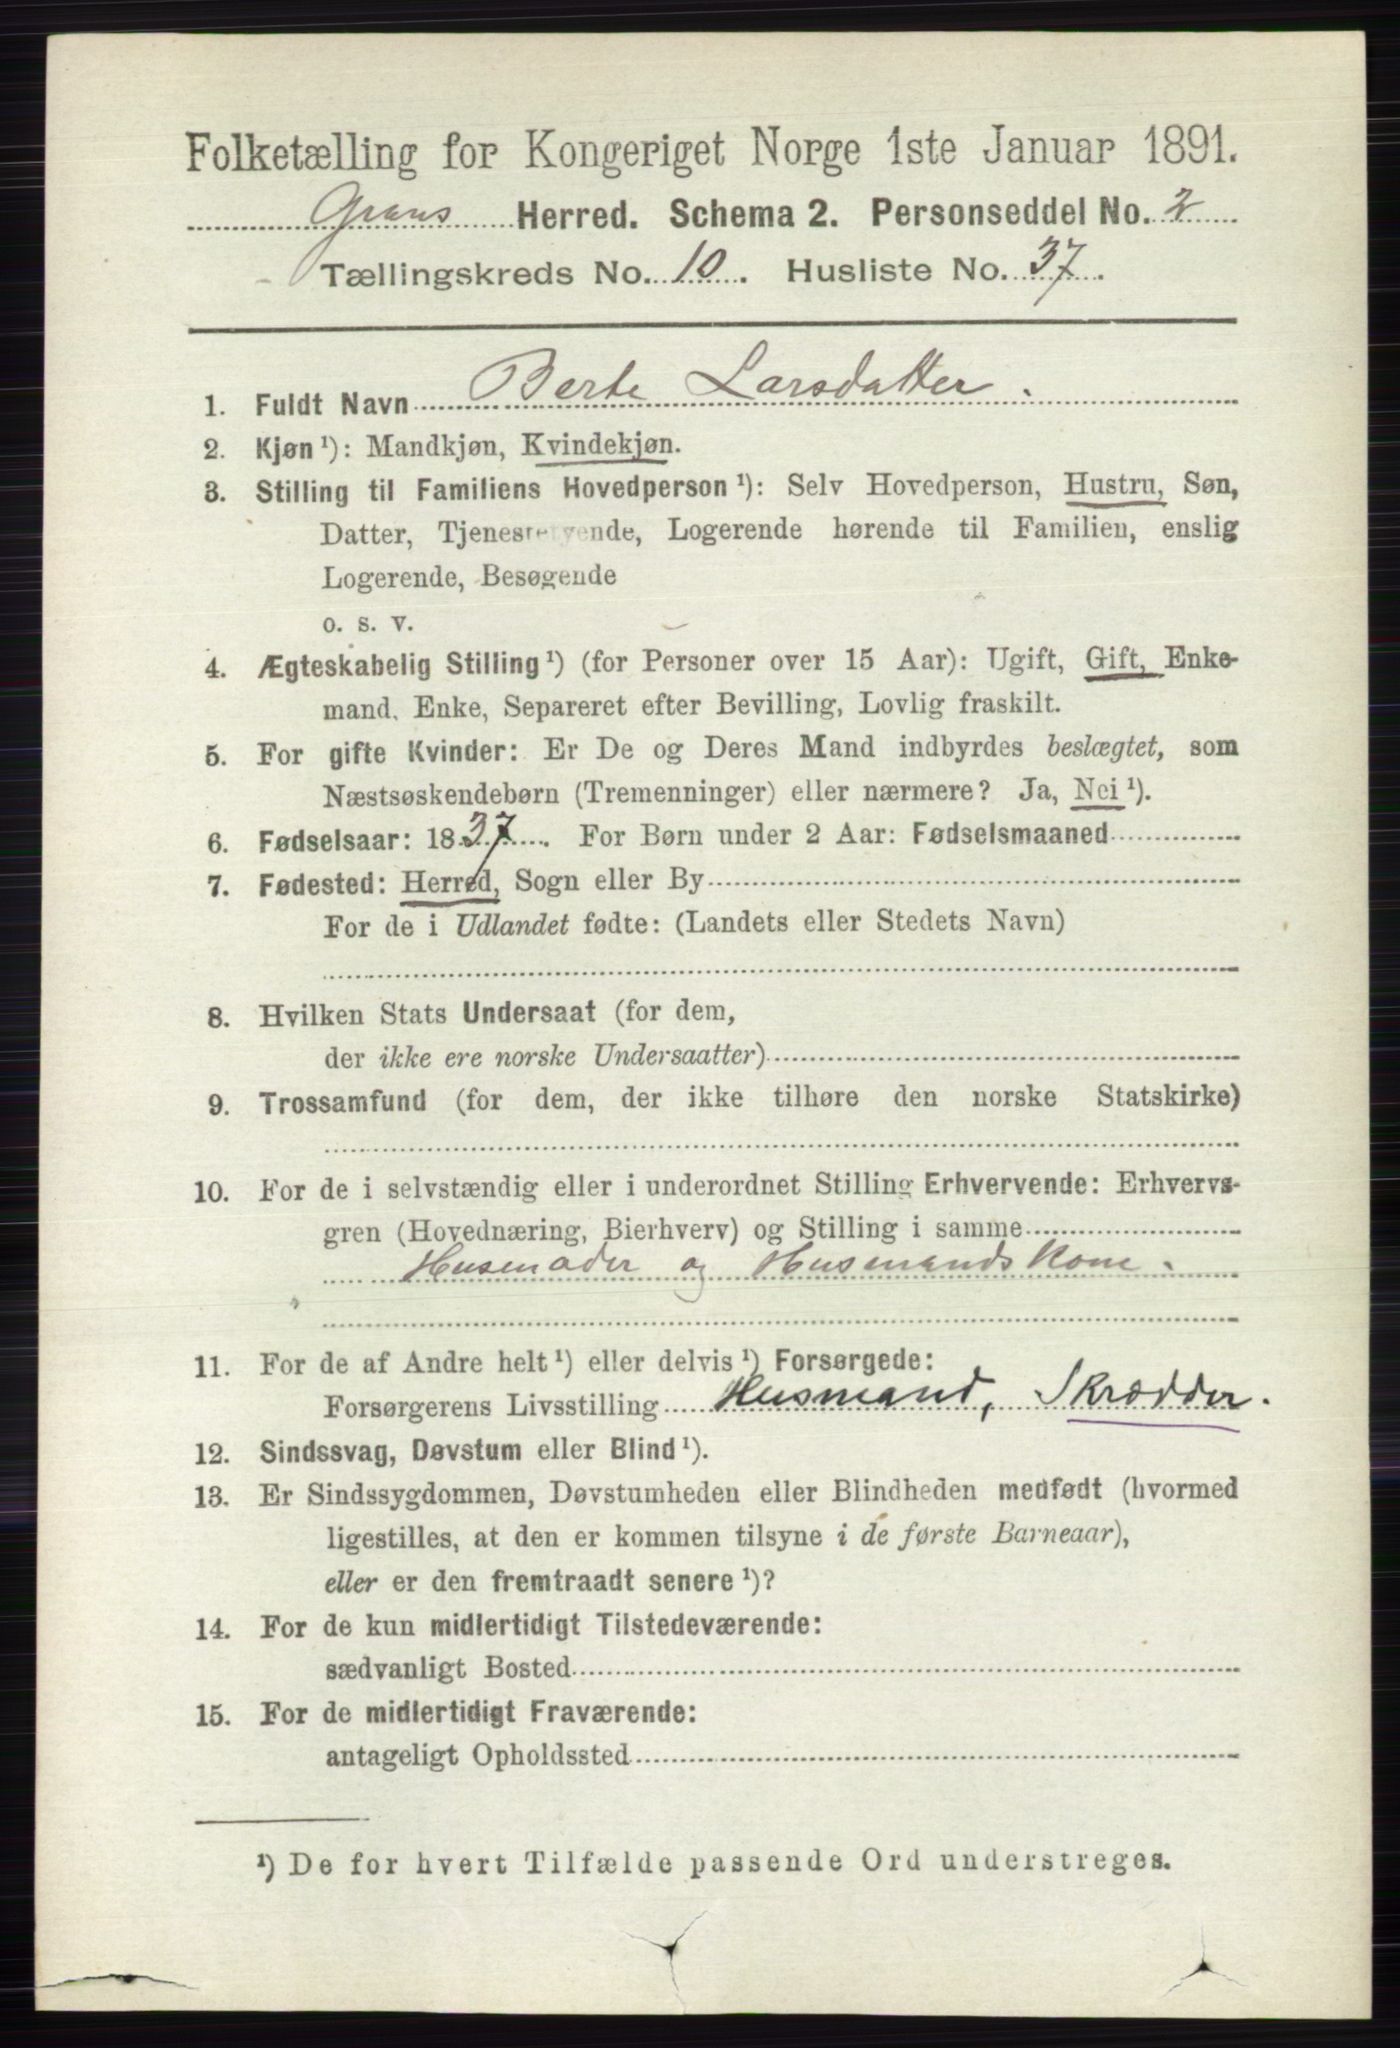 Folketælling for Kongeriget Norge 1ste Januar 1891.
Grans Herred. Schema 2. Personseddel No. 2
Tællingskreds No. 10. Husliste No. 37.
1. Fuldt Navn Berte Larsdatter.
2. Kjøn¹): Mandkjøn, Kvindekjøn.
3. Stilling til Familiens Hovedperson¹): Selv Hovedperson, Hustru, Søn,
Datter, Tjenestetyende, Logerende hørende til Familien, enslig
Logerende, Besøgende
o. s. v.
4. Ægteskabelig Stilling¹) (for Personer over 15 Aar): Ugift, Gift, Enke-
mand, Enke, Separeret efter Bevilling, Lovlig fraskilt.
5. For gifte Kvinder: Er De og Deres Mand indbyrdes beslægtet, som
Næstsøskendebørn (Tremenninger) eller nærmere? Ja, Nei¹).
6. Fødselsaar: 1837. For Børn under 2 Aar: Fødselsmaaned
7. Fødested: Herred, Sogn eller By
For de i Udlandet fødte: (Landets eller Stedets Navn)
8. Hvilken Stats Undersaat (for dem,
der ikke ere norske Undersaatter)
9. Trossamfund (for dem, der ikke tilhøre den norske Statskirke)
10. For de i selvstændig eller i underordnet Stilling Erhvervende: Erhvervs-
gren (Hovednæring, Bierhverv) og Stilling i samme
Husmoder og Husmandskone.
11. For de af Andre helt¹) eller delvis¹) Forsørgede:
Forsørgerens Livsstilling Husmand, Skrædder.
12. Sindssvag, Døvstum eller Blind¹).
13. Er Sindssygdommen, Døvstumheden eller Blindheden medfødt (hvormed
ligestilles, at den er kommen tilsyne i de første Barneaar),
eller er den fremtraadt senere¹)?
14. For de kun midlertidigt Tilstedeværende:
sædvanligt Bosted
15. For de midlertidigt Fraværende:
antageligt Opholdssted
¹) De for hvert Tilfælde passende Ord understreges.